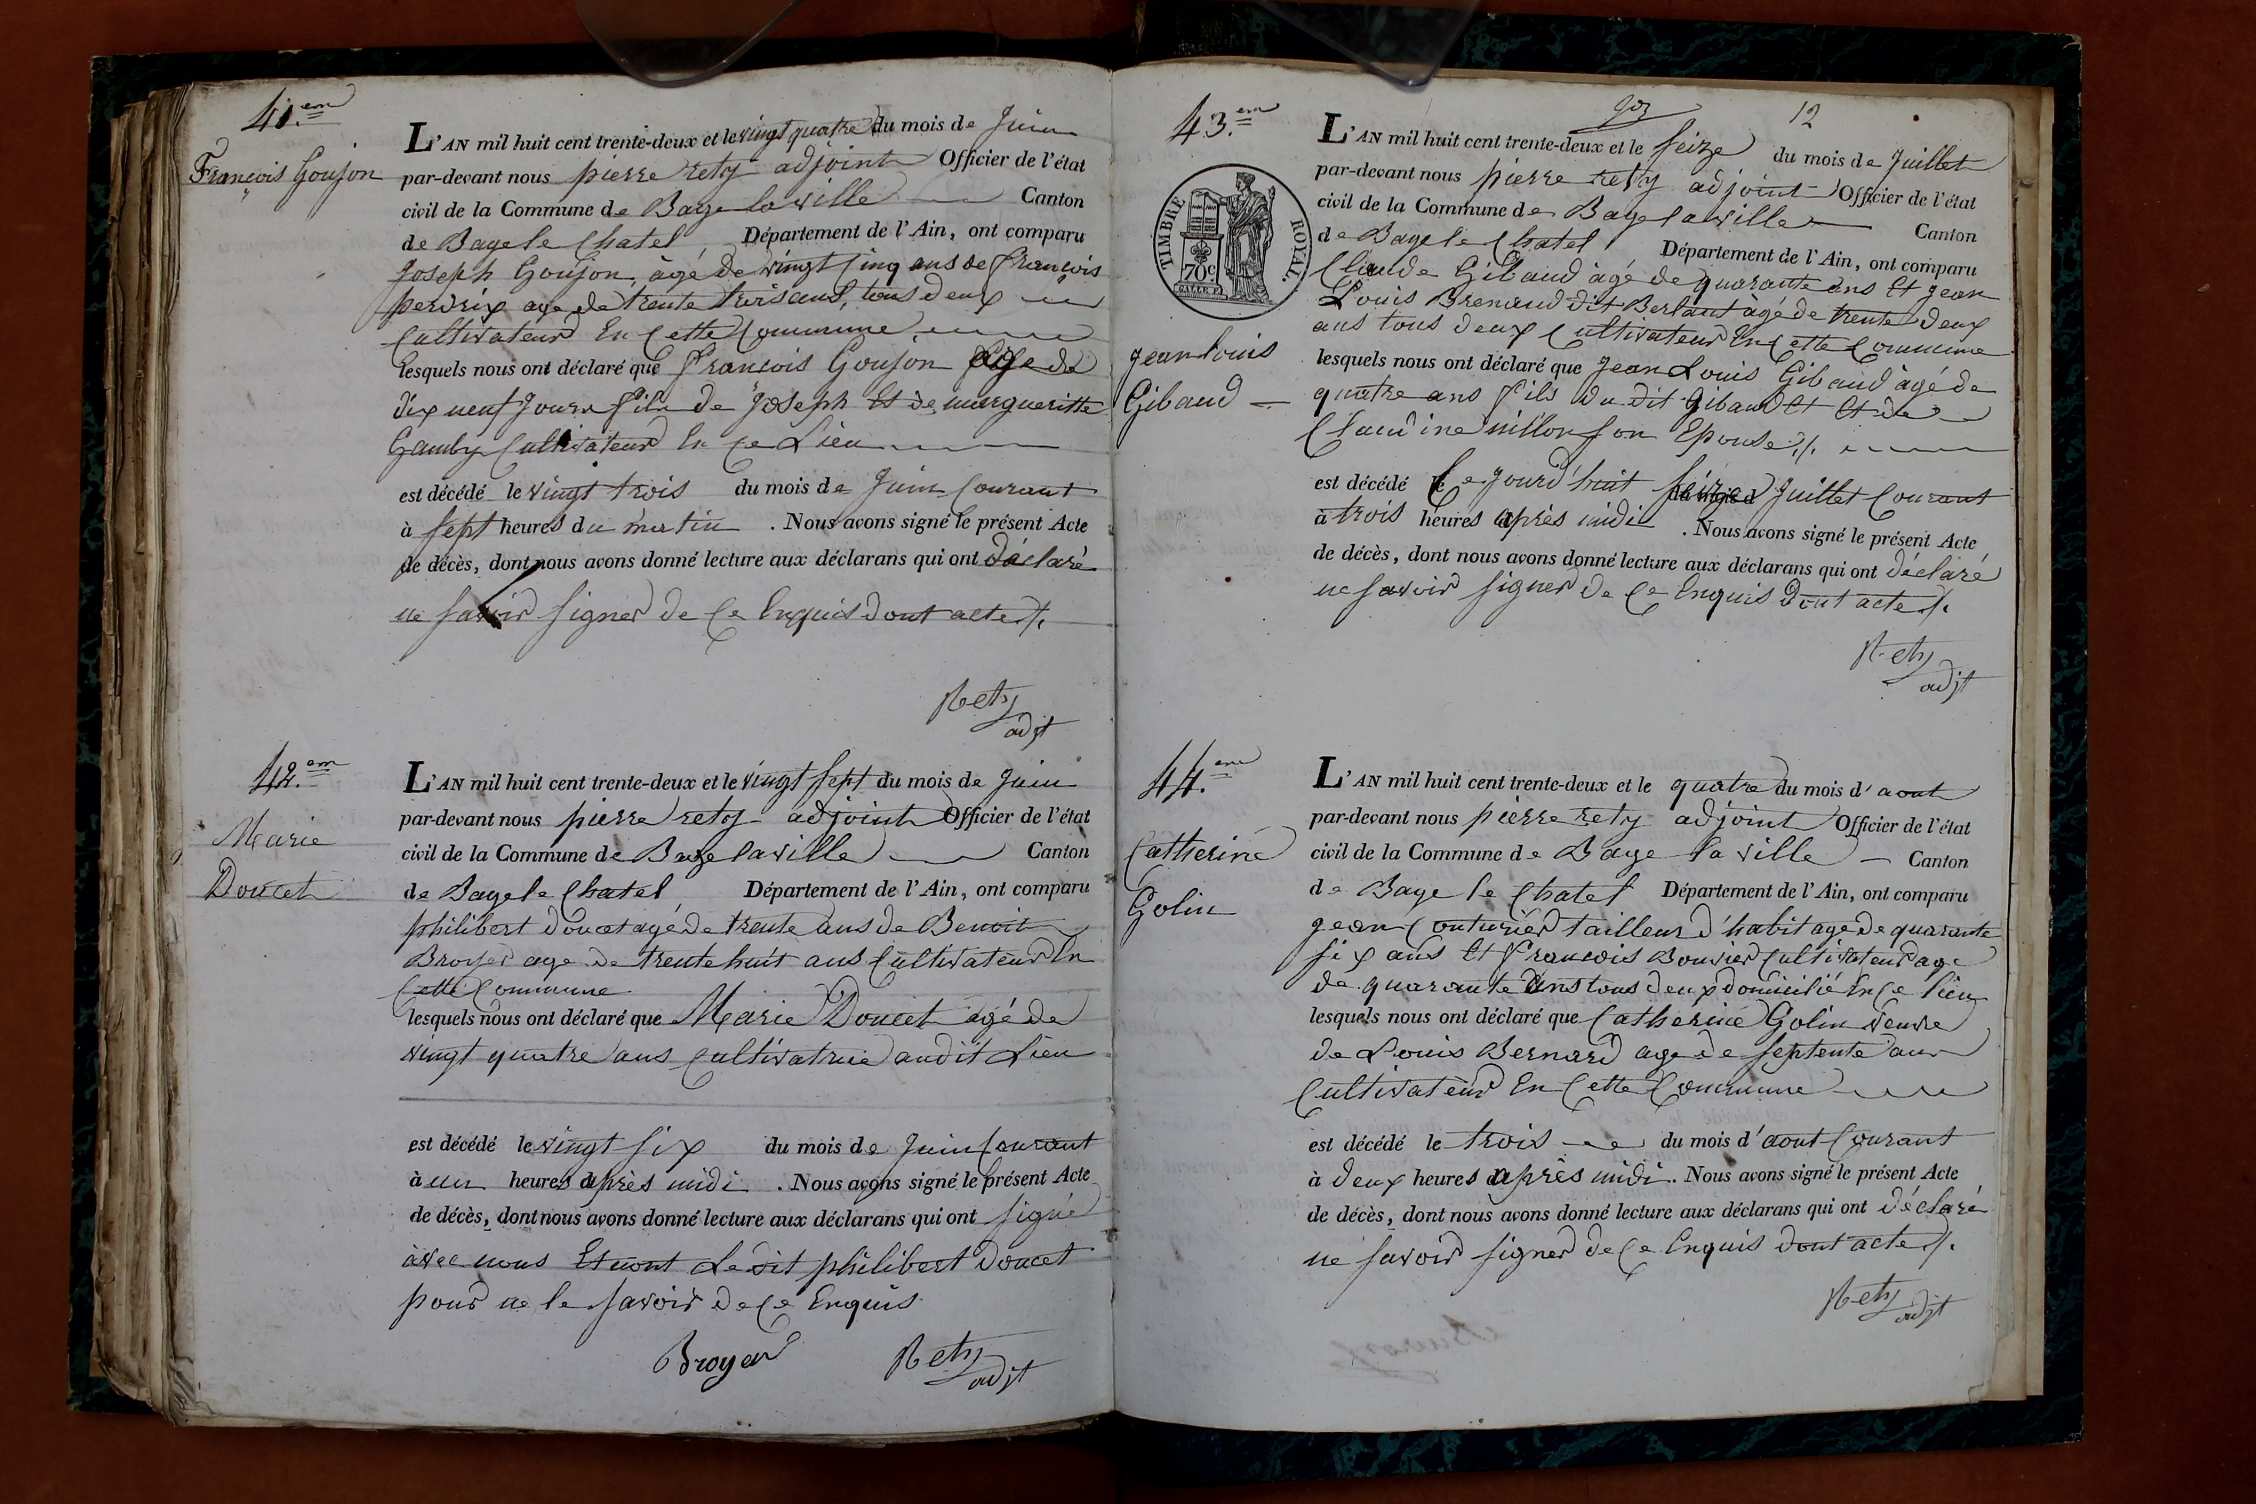 41.em
François Goujon
L'AN mil huit cent trente-deux et le vingt quatre du mois de Juin
par-devant nous pierre rety adjoint Officier de l'état
civil de la Commune de Bage la ville Canton
de Bage le Chatel Département de l'Ain, ont comparu
Joseph Goujon, àgé de vingt cinq ans de François
perdrix age de trente trois ans, tous deux
Cultivateur En Cette Commune
lesquels nous ont déclaré que François Goujon age de
dix neuf Jours fils de Joseph Et de margueritte
Gamby Cultivateur En Ce Lieu
est décédé le vingt trois du mois de Juin Courant
à sept heures du matin . Nous avons signé le présent Acte
de décès, dont nous avons donné lecture aux déclarans qui ont déclaré
ne savoir signer de Ce Enquis dont acte ./.
Rety
adjt
42.em
Marie
Doucet
L'AN mil huit cent trente-deux et le vingt sept du mois de Juin
par-devant nous pierre rety adjoint Officier de l'état
civil de la Commune de Bage la ville Canton
de Bage le Chatel Département de l'Ain, ont comparu
philibert Doucet agé de trente ans de Benoit
Broyer age de trente huit ans Cultivateur En
Cette Commune
lesquels nous ont déclaré que Marie Doucet agé de
vingt quatre ans Cultivatrice audit Lieu
est décédé le vingt six du mois de Juin Courant
à un heures après midi . Nous avons signé le présent Acte
de décès, dont nous avons donné lecture aux déclarans qui ont signé
avec nous Et nont Ledit philibert Doucet
pour ne le savoir de Ce Enquis
Broyer Rety
adjt
12
43.em
TIMBRE ROYAL.
70c
Jean Louis
Gibaud
L'AN mil huit cent trente-deux et le seize du mois de Juillet
par-devant nous pierre rety adjoint Officier de l'état
civil de la Commune de Bage la ville Canton
de Bage le Chatel Département de l'Ain, ont comparu
Claude Gibaud àgé de quarante ans Et Jean
Louis Brenaud dit Berlant àgé de trente deux
ans tous deux Cultivateur En Cette Commune
lesquels nous ont déclaré que Jean Louis Gibaud àgé de
quatre ans fils du dit Gibaud Et Et de
Claudine millon son Epouse ./.
est décédé le Ce Jourd'huit seize du mois d Juillet Courant
à trois heures après midi . Nous avons signé le présent Acte
de décès, dont nous avons donné lecture aux déclarans qui ont déclaré
ne savoir signer de Ce Enquis dont acte ./.
Rety
adjt
44.em
Catherine
Golin
L'AN mil huit cent trente-deux et le quatre du mois d'aout
par-devant nous pierre rety adjoint Officier de l'état
civil de la Commune de Bage la ville Canton
de Bage le Chatel Département de l'Ain, ont comparu
jean Couturier tailleur d'habit age de quarante
six ans Et François Bouvier Cultivateur age
de quarante ans tous deux domicilié En Ce lieu
lesquels nous ont déclaré que Catherine Golin veuve
de Louis Bernard age de septente ans
Cultivateur En Cette Commune
est décédé le trois du mois d'aout Courant
à deux heures après midi. Nous avons signé le présent Acte
de décès, dont nous avons donné lecture aux déclarans qui ont déclaré
ne savoir signer de Ce Enquis dont acte ./.
Rety
adjt